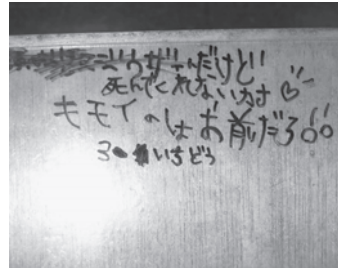 うザいんだけど
死んでくれないカナ♡
キモイのはお前だろ。
3 いちどう